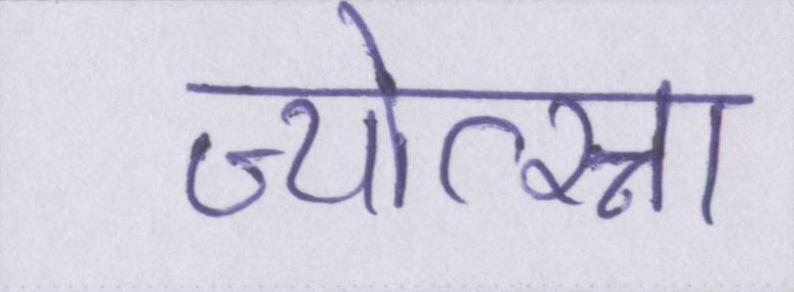 ज्योत्स्ना